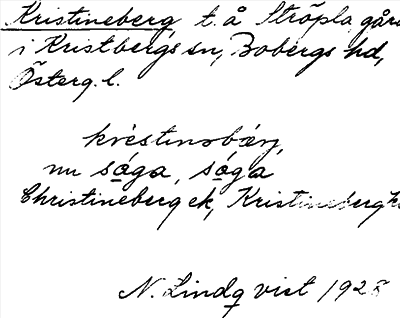 Kristineberg, t. å Ströpla gård
i Kristbergs sn, Bobergs hd,
Österg. l.
nu
Christineberg ek, Kristineberg
N. Lindqvist 1928